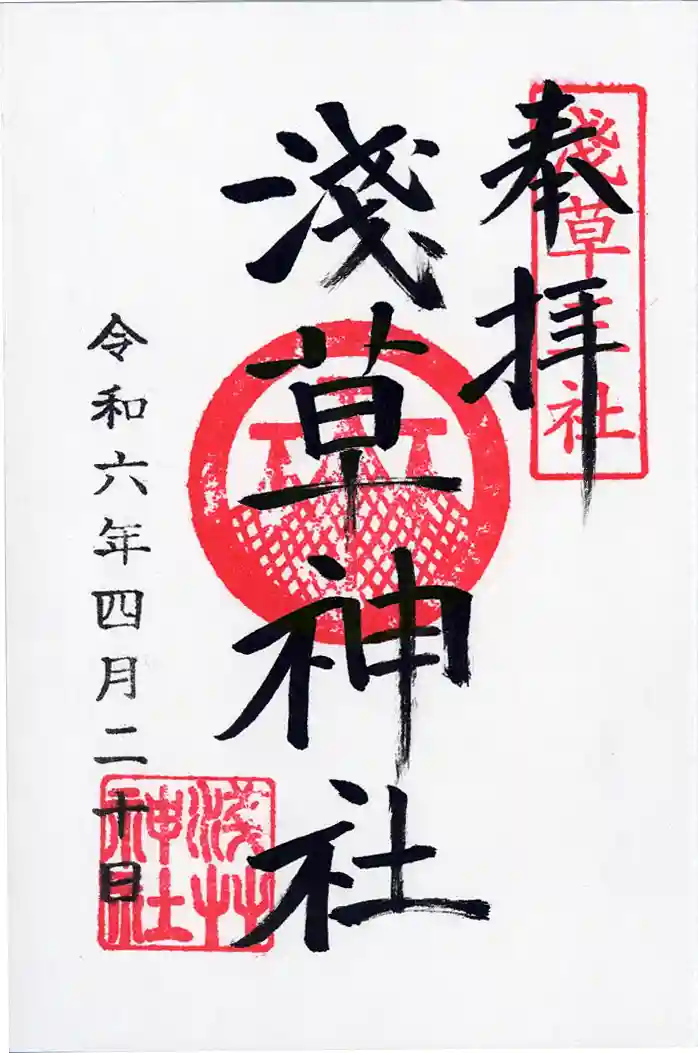 奉拝
淺草三社
淺草神社
令和六年四月二十日
淺艸神社